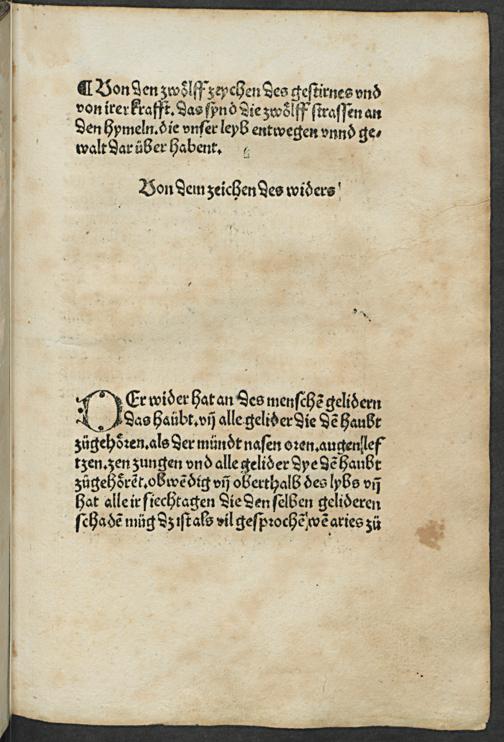 ¶ Von den zwoͤlff zeychen des gestirnes vnd
von irer krafft. das synd die zwoͤlff strassen an
den hymeln. die vnser leyb entwegen vnnd ge⸗
walt dar über habent.
Von dem zeichen des widers
DEr wider hat an des menschē gelidern
das haübt. vñ alle gelider die dē haubt
zügehoͤren. als der mündt nasen oren. augen/lef
tzen. zen zungen vnd alle gelider dye dē haubt
zügehoͤrēt. obwēdig vñ oberthalb des lybs vñ
hat alle ir siechtagen die den selben gelideren
schadē müg dz ist als vil gesprochē/wē aries zü